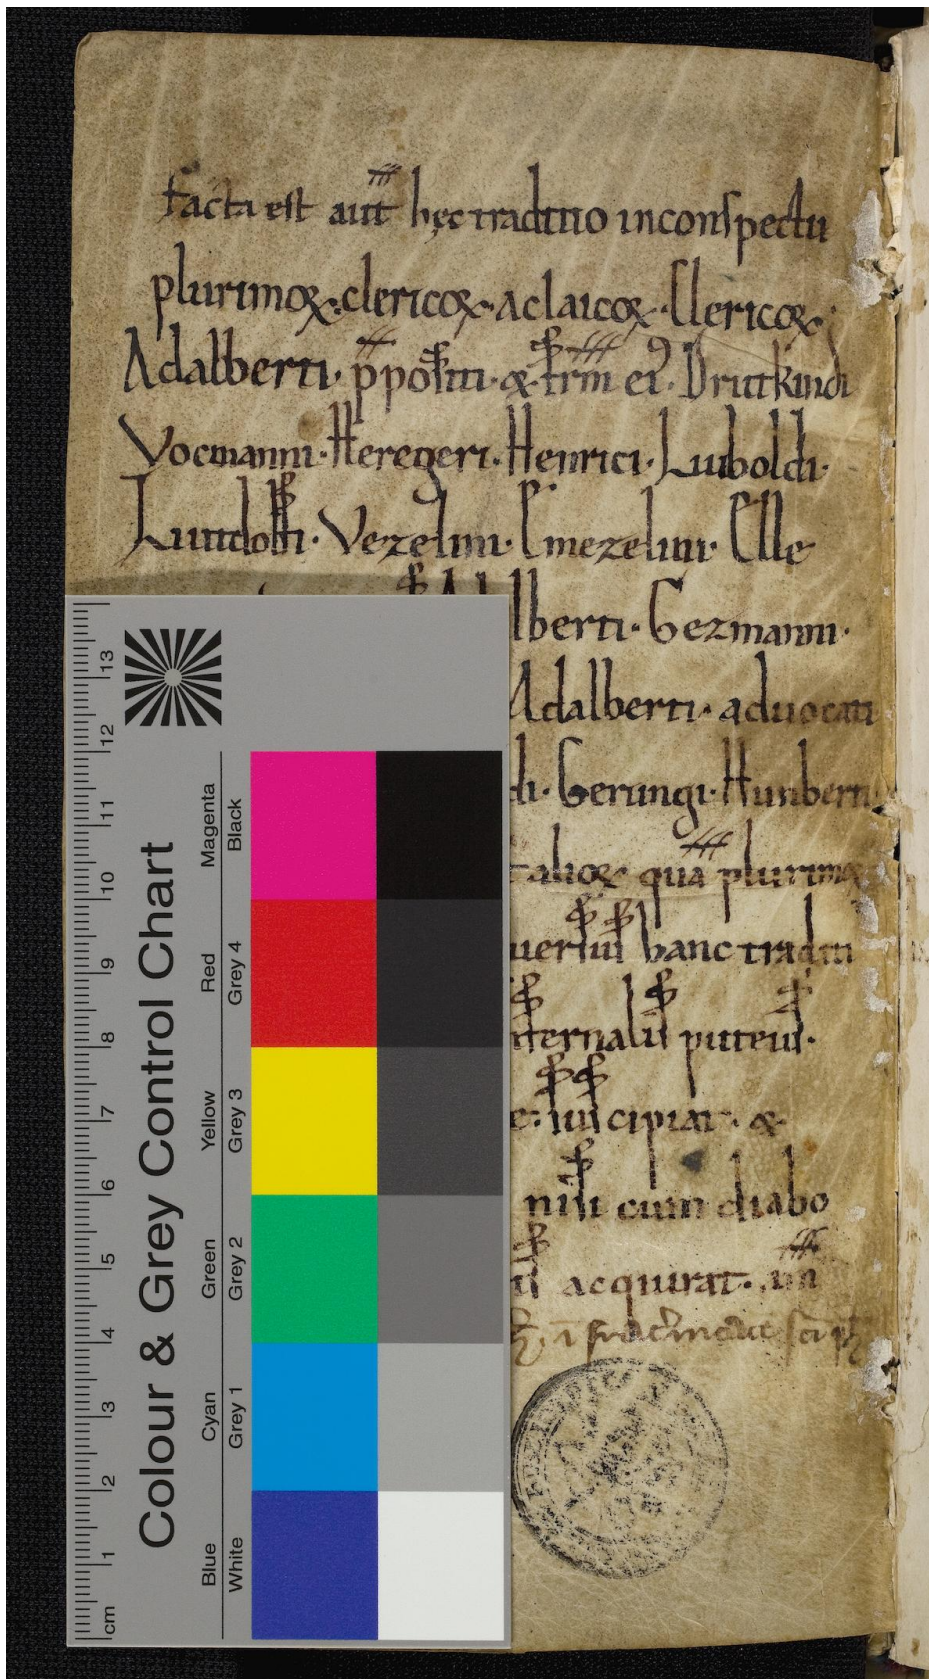 facta est aut̄ hęc traditio inconspectu
plurimoꝝ. clericoꝝ. aclaicoꝝ. Clericoꝝ.
Adalberti. p̄positi. & frm̄ ei᾽. Drutkindi
Vocmanni. Heregeri. Henrici. Luiboldi.
Liutdolfi. Vezelini. Emezelini. Elle
lberti. Gezmanni.
Adalberti. aduocati
di. Gerungi. Hunberti
talioꝝ quā plurimoꝝ
uerſuſ hanc traditi
nfernaliſ puteuſ.
e. iuſ cipiat. &
niſi cum diabo
acquirat. im̄
Colour & Grey Control Chart
Magenta
Black
Red
Grey 4
Yellow
Grey 3
Green
Grey 2
Cyan
Grey 1
Blue
White
13
12
11
10
9
8
7
6
5
4
3
2
1
cm